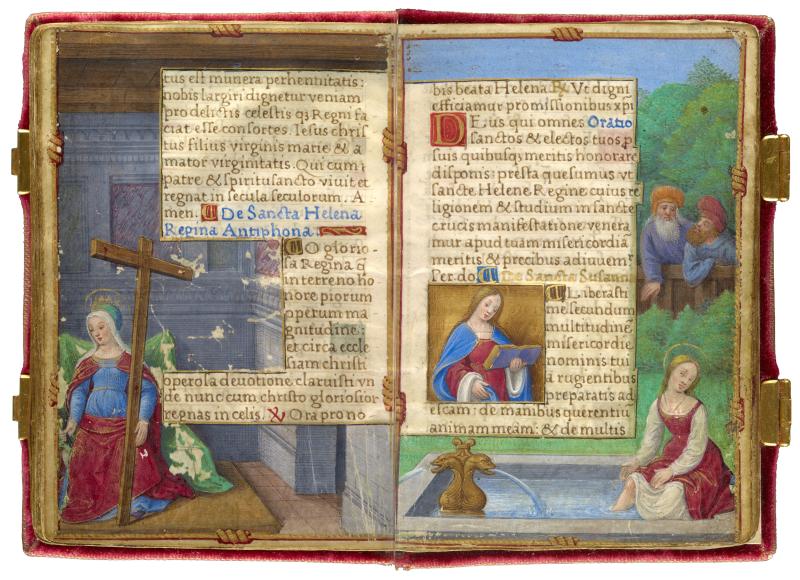 tus est munera perhennitatis:
nobis largiri dignetur veniam
pro delictis celestis q; Regni fa
ciat esse consortes. Iesus chris
tus filius virginis marie & a
mator virginitatis. Qui cum
patre & spiritusancto viuit et
regnat in secula seculorum. A
men. De Sancta Helena
Regina Antiphona.
O glorio
sa Regina q
in terreno ho
nore piorum
operum ma
gnitudine:
et circa eccle
siam christi
operosa deuotione claruisti vn
de nunc cum christo gloriosior
regnas in celis. ℟ Ora pro no
bis beata Helena. ℟ Vt digni
efficiamur promissionibus xpi
DEus qui omnes Oratio
sanctos & electos tuos p
suis quibusq; meritis honorare
disponis: presta quesumus vt
sancte Helene Regine cuius re
ligionem & studium in sancte
crucis manifestatione venera
mur apud tuam misericordiā
meritis & precibus adiuuemr
Per. do. De Sancta Susann
Liberasti
me secundum
multitudinē
misericordie
nominis tui
a rugientibus
preparatis ad
escam: de manibus querentiū
animam meam: & de multis